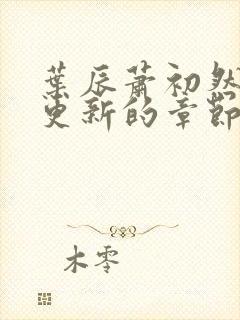 葉辰蕭初然
更新的章節
木零